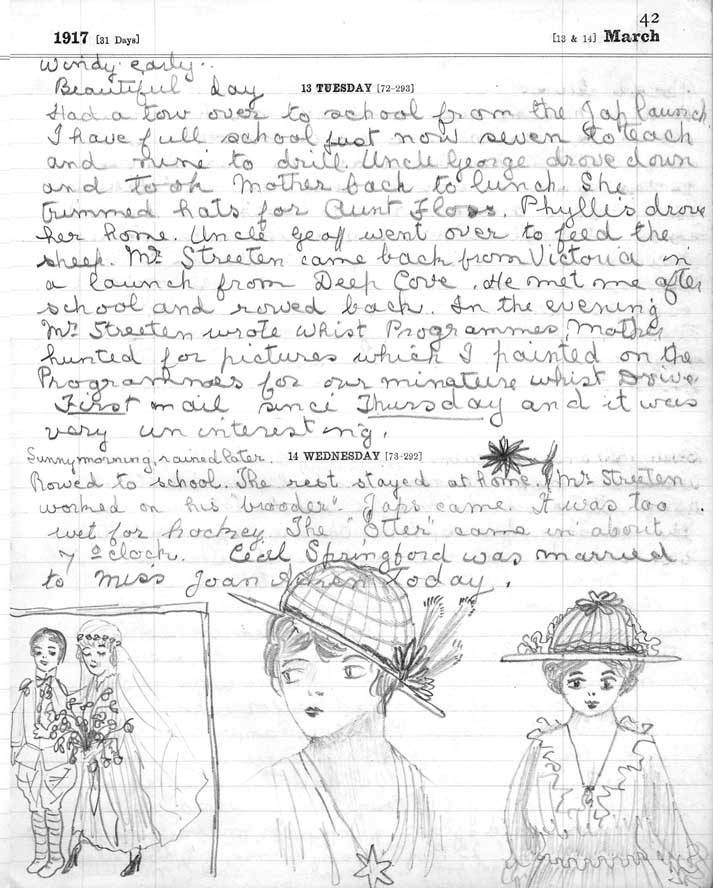 42
1917 [31 Days] [13 & 14] March
Windy early..
Beautiful day
13 TUESDAY [72-293]
Had a tow over to school from the Jap launch
I have full school just now seven to teach
and nine to drill. Uncle George drove down
and took Mother back to lunch. She
trimmed hats for Aunt Floss. Phyllis drove
her home. Uncle Geoff went over to feed the
sheep. Mr. Streeten came back from Victoria in
a launch from Deep Cove. He met me after
school and rowed back. In the evening
Mr. Streeten wrote whist Programmes, Mother
hunted for pictures which I painted on the
Programmes for our minature whist Drive
First mail since Thursday and it was
very uninteresting.
Sunny morning, rained later. 14 WEDNESDAY [73-292]
Rowed to school. The rest stayed at home. Mr Streeten
worked on his "brooder". Japs came. It was too
wet for hockey. The "Otter" came in about
7 o'clock. Cecil Springford was married
to Miss Joan today.